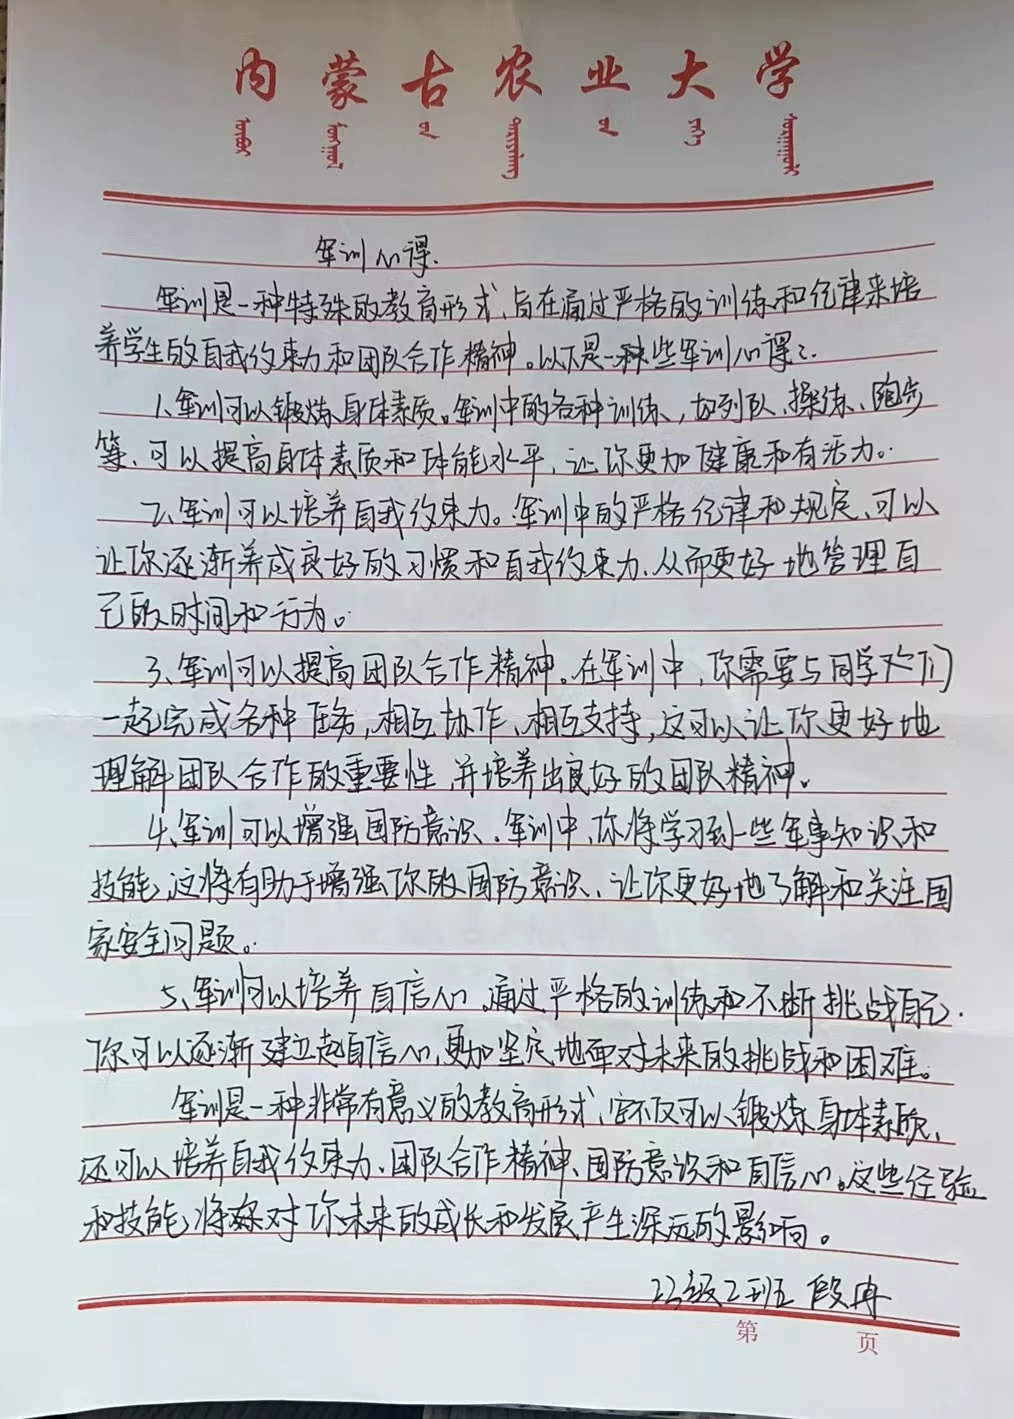 内蒙古农业大学
军训心得.
军训是一种特殊的教育形式,旨在通过严格的训练和纪律来培
养学生的自我约束力和团队合作精神。以下是一种些军训心得:
1、军训可以锻炼身体素质。军训中的各种训练,如列队、操练、跑步
等,可以提高身体素质和体能水平,让你更加健康和有活力。
2、军训可以培养自我约束力。军训中的严格纪律和规定,可以
让你逐渐养成良好的习惯和自我约束力,从而更好地管理自
己的时间和行为。
3、军训可以提高团队合作精神。在军训中,你需要与同学们
一起完成各种任务,相互协作、相互支持,这可以让你更好地
理解团队合作的重要性,并培养出良好的团队精神。
4、军训可以增强国防意识。军训中,你将学习到一些军事知识和
技能,这将有助于增强你的国防意识,让你更好地了解和关注国
家安全问题。
5、军训可以培养自信心。通过严格的训练和不断挑战自己,
你可以逐渐建立起自信心,更加坚定地面对未来的挑战和困难。
军训是一种非常有意义的教育形式,它不仅可以锻炼身体素质,
还可以培养自我约束力、团队合作精神、国防意识和自信心。这些经验
和技能,将对你未来的成长和发展产生深远的影响。
23级2班 段冉
第 页